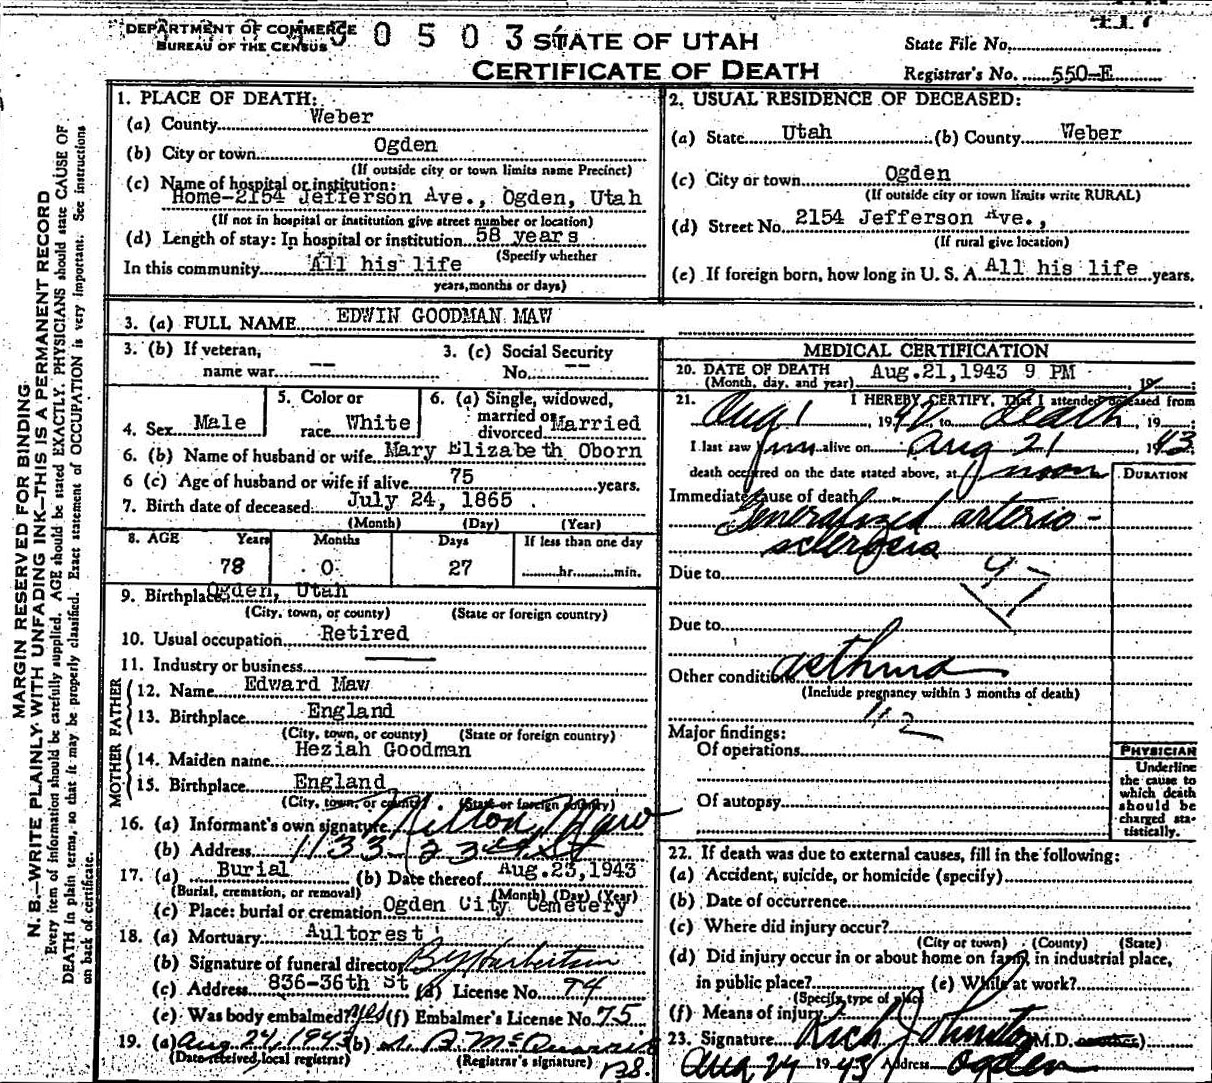 DEPARTMENT OF COMMERCE
BUREAU OF THE CENSUS
0503
STATE OF UTAH
CERTIFICATE OF DEATH
State File No.
Registrar's No. 550-E
MARGIN RESERVED FOR BINDING
N. B.—WRITE PLAINLY WITH UNFADING INK—THIS IS A PERMANENT RECORD
Every item of information should be carefully supplied. AGE should be stated EXACTLY. PHYSICIANS should state CAUSE OF
DEATH in plain terms, so that it may be properly classified. Exact statement of OCCUPATION is very important. See instructions
on back of certificate.
1. PLACE OF DEATH:
(a) County Weber
(b) City or town Ogden
(If outside city or town limits name Precinct)
(c) Name of hospital or institution:
Home-2154 Jefferson Ave., Ogden, Utah
(If not in hospital or institution give street number or location)
(d) Length of stay: In hospital or institution 58 years
(Specify whether
In this community All his life
years, months or days)
2. USUAL RESIDENCE OF DECEASED:
(a) State Utah (b) County Weber
(c) City or town Ogden
(If outside city or town limits write RURAL)
(d) Street No. 2154 Jefferson Ave.,
(If rural give location)
(e) If foreign born, how long in U. S. A. All his life years.
3. (a) FULL NAME EDWIN GOODMAN MAW
3. (b) If veteran,
name war --
3. (c) Social Security
No. --
4. Sex Male
5. Color or
race White
6. (a) Single, widowed,
married or
divorced Married
6. (b) Name of husband or wife Mary Elizabeth Oborn
6 (c) Age of husband or wife if alive 75 years.
7. Birth date of deceased July 24, 1865
(Month) (Day) (Year)
8. AGE Years Months Days If less than one day
78 0 27 hr. min.
9. Birthplace Ogden, Utah
(City, town, or county) (State or foreign country)
10. Usual occupation Retired
11. Industry or business
FATHER
12. Name Edward Maw
13. Birthplace England
(City, town, or county) (State or foreign country)
MOTHER
14. Maiden name Heziah Goodman
15. Birthplace England
(City, town, or county) (State or foreign country)
16. (a) Informant's own signature Wilton Maw
(b) Address 1133 23rd St
17. (a) Burial (b) Date thereof Aug.23,1943
(Burial, cremation, or removal) (Month) (Day) (Year)
(c) Place: burial or cremation Ogden City Cemetery
18. (a) Mortuary Aultorest
(b) Signature of funeral director
(c) Address 836-36th St (d) License No. 74
(e) Was body embalmed? yes (f) Embalmer's License No. 75
19. (a) Aug 24, 1943 (b)
(Date received, local registrar) (Registrar's signature)
MEDICAL CERTIFICATION
20. DATE OF DEATH Aug.21,1943 9 PM
(Month, day, and year) 19
21. I HEREBY CERTIFY, That I attended deceased from
Aug 1 1942 to death, 19
I last saw him alive on Aug 21 1943
death occurred on the date stated above, at noon
DURATION
Immediate cause of death
Generalized arterio-
sclerosis
Due to
97
Due to
Other condition asthma
(Include pregnancy within 3 months of death)
112
Major findings:
Of operations
Of autopsy
PHYSICIAN
Underline
the cause to
which death
should be
charged sta-
tistically.
22. If death was due to external causes, fill in the following:
(a) Accident, suicide, or homicide (specify)
(b) Date of occurrence
(c) Where did injury occur?
(City or town) (County) (State)
(d) Did injury occur in or about home on farm, in industrial place,
in public place? (e) While at work?
(Specify type of place)
(f) Means of injury
23. Signature Rich Johnston (M.D. or other)
Aug 24 1943 Address Ogden